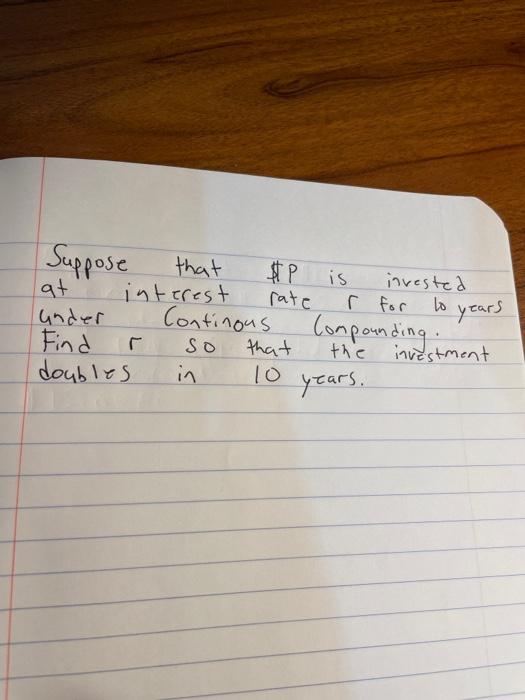 Suppose that $P is invested
at interest rate r for 10 years
under Continous Compounding.
Find r so that the investment
doubles in 10 years.